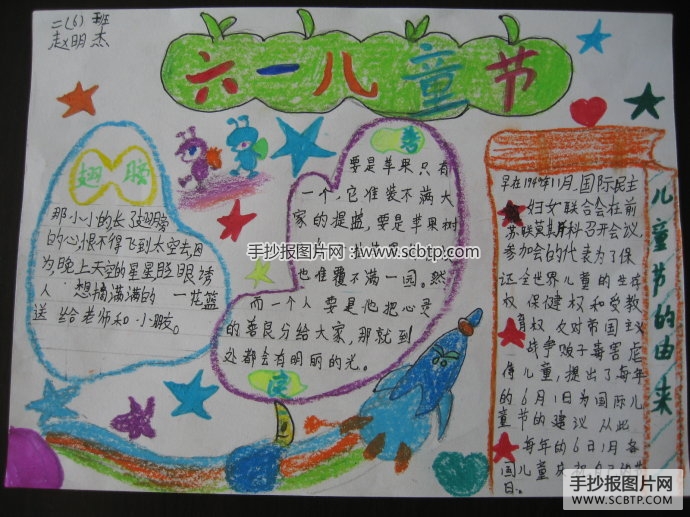 二(6)班
赵明杰
六一儿童节
翅膀
那小小的长了翅膀
的心恨不得飞到太空去,因
为,晚上天空的星星眨眼诱
人 想摘满满的一花篮
送 给老师和小朋友。
要是苹果只有
一个,它准装不满大
家的提蓝,要是苹果树
也准覆不满一园。然
而一个人要是他把心灵
的善良分给大家,那就到
处都会有明丽的光。
儿童节的由来
早在1949年11月,国际民主
妇女联合会在前
苏联莫斯科召开会议,
参加会的代表为了保
证全世界儿童的生存
权 保健权和受教
育权 反对帝国主义
战争贩子毒害虐
待儿童,提出了每年
的6月1日为国际儿
童节的建议 从此
每年的6月1日为各
国儿童
日。
手抄报图片网
www.scbtp.com
手抄报图片网
www.scbtp.com
手抄报图片网
www.scbtp.com
手抄报图片网
WWW.SCBTP.COM